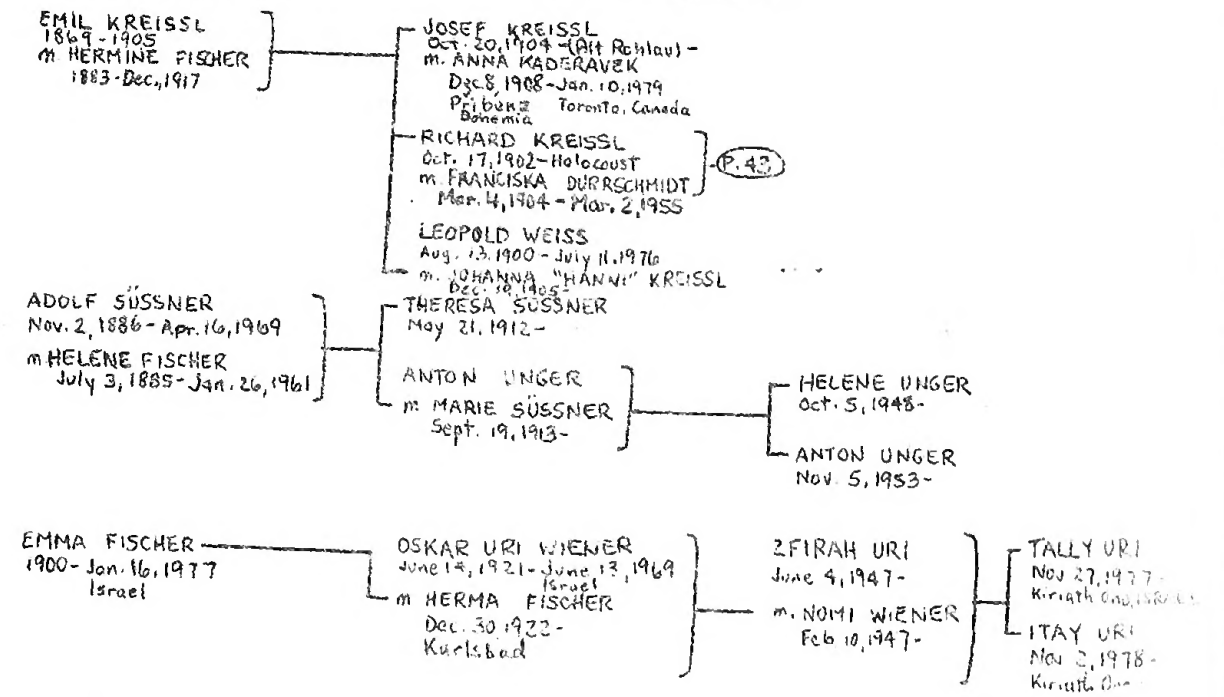 EMIL KREISSL
1869-1905
m HERMINE FISCHER
1883-Dec., 1917
JOSEF KREISSL
Oct. 20, 1904 -(Alt Rohlau) -
m. ANNA KADERAVEK
Dec 8, 1908-Jan. 10, 1979
Toronto, Canada
Bohemia
RICHARD KREISSL
Oct. 17, 1902-Holocoust
m. FRANCISKA DURRSCHMIDT
Mar. 4, 1904 - Mar. 2, 1955
P. 43
LEOPOLD WEISS
Aug. 13, 1900 - July 11, 1976
m. JOHANNA "HANNI" KREISSL
Dec. 19, 1905-
ADOLF SÜSSNER
Nov. 2, 1886 - Apr. 16, 1969
m HELENE FISCHER
July 3, 1885-Jan. 26, 1961
THERESA SÜSSNER
May 21, 1912-
ANTON UNGER
m. MARIE SÜSSNER
Sept. 19, 1913-
HELENE UNGER
Oct. 5, 1948-
ANTON UNGER
Nov. 5, 1953-
EMMA FISCHER
1900-Jan. 16, 1977
Israel
OSKAR URI WIENER
June 14, 1921- June 13, 1969
Israel
m HERMA FISCHER
Dec. 30, 1922-
Karlsbad
ZFIRAH URI
June 4, 1947-
m. NOMI WIENER
Feb 10, 1947-
TALLY URI
Nov 27, 1977-
Kiriath Ono, ISRAEL
ITAY URI
Nov 2, 1978-
Kiriath Ono